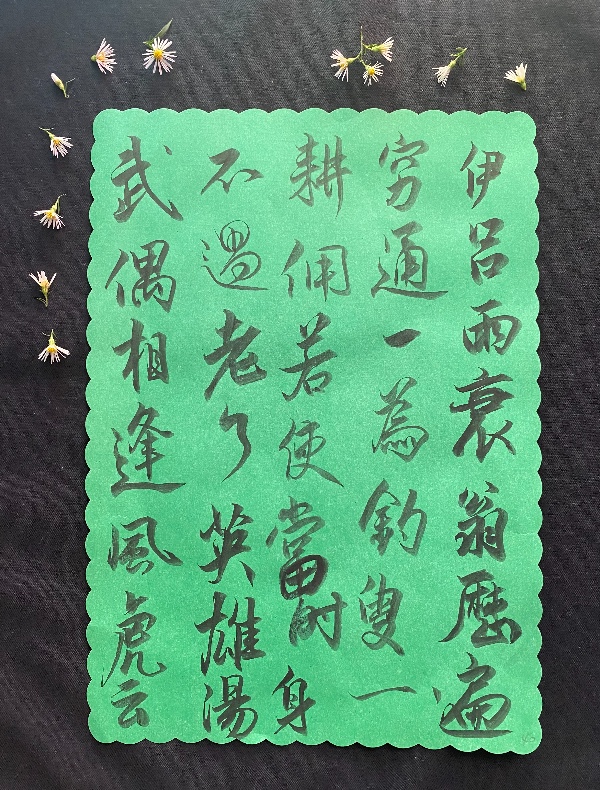 伊呂兩衰翁歷遍
窮通一為釣叟一
耕傭若使當時身
不遇老了英雄湯
武偶相逢風虎云